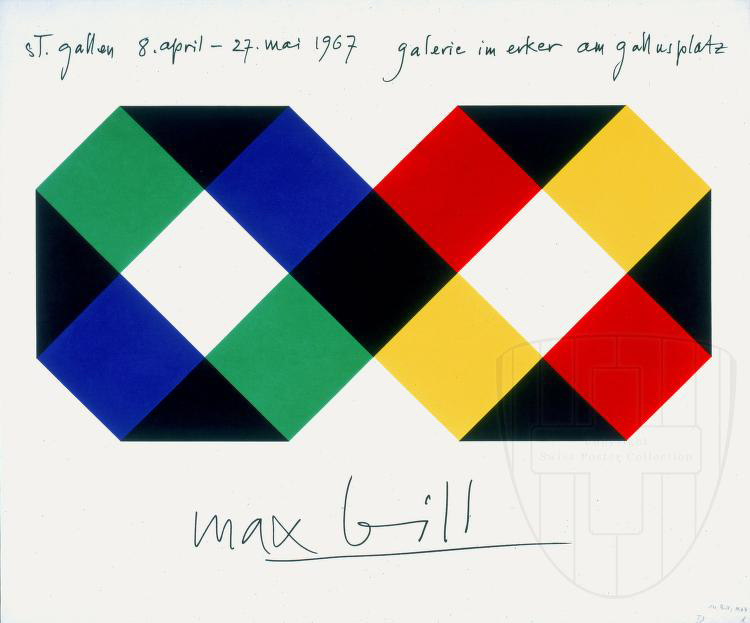 sT. gallen 8. april – 27. mai 1967 galerie im erker am gallusplatz
max bill
Copyright
Swiss Poster Collection